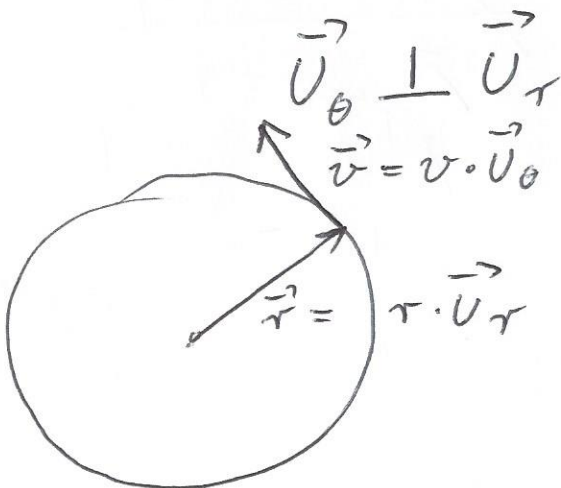 $\vec{U}_\theta \perp \vec{U}_r$
$\vec{v} = v \cdot \vec{U}_\theta$
$\vec{r} = r \cdot \vec{U}_r$